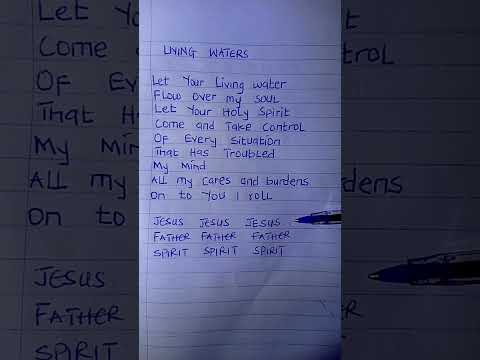 LIVING WATERS
Let Your Living water
Flow over my soul
Let Your Holy Spirit
Come and Take Control
Of Every Situation
That Has Troubled
My Mind
ALL my cares and burdens
on to You I roll
JESUS JESUS JESUS
FATHER FATHER FATHER
SPIRIT SPIRIT SPIRIT